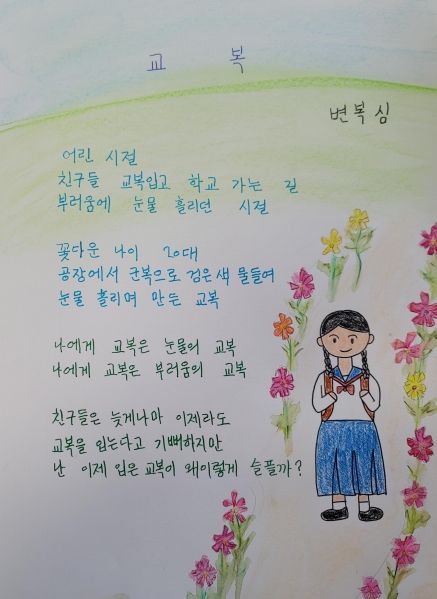 교 복
변복심
어린 시절
친구들 교복입고 학교 가는 길
부러움에 눈물 흘리던 시절
꽃다운 나이 20대
공장에서 군복으로 검은색 물들여
눈물 흘리며 만든 교복
나에게 교복은 눈물의 교복
나에게 교복은 부러움의 교복
친구들은 늦게나마 이제라도
교복을 입는다고 기뻐하지만
난 이제 입은 교복이 왜이렇게 슬플까?